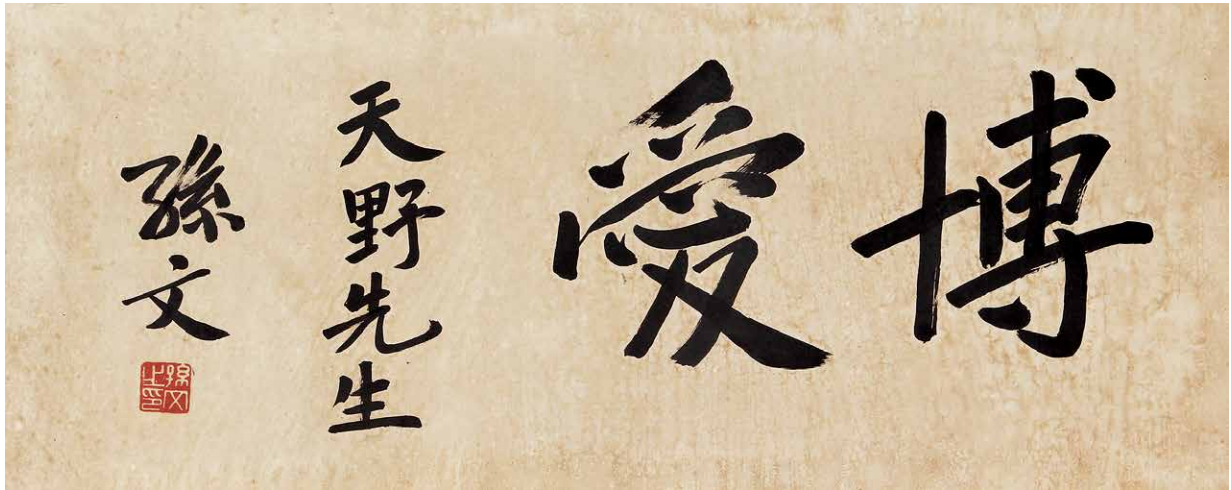 博愛
天野先生
孫文
孫文之印